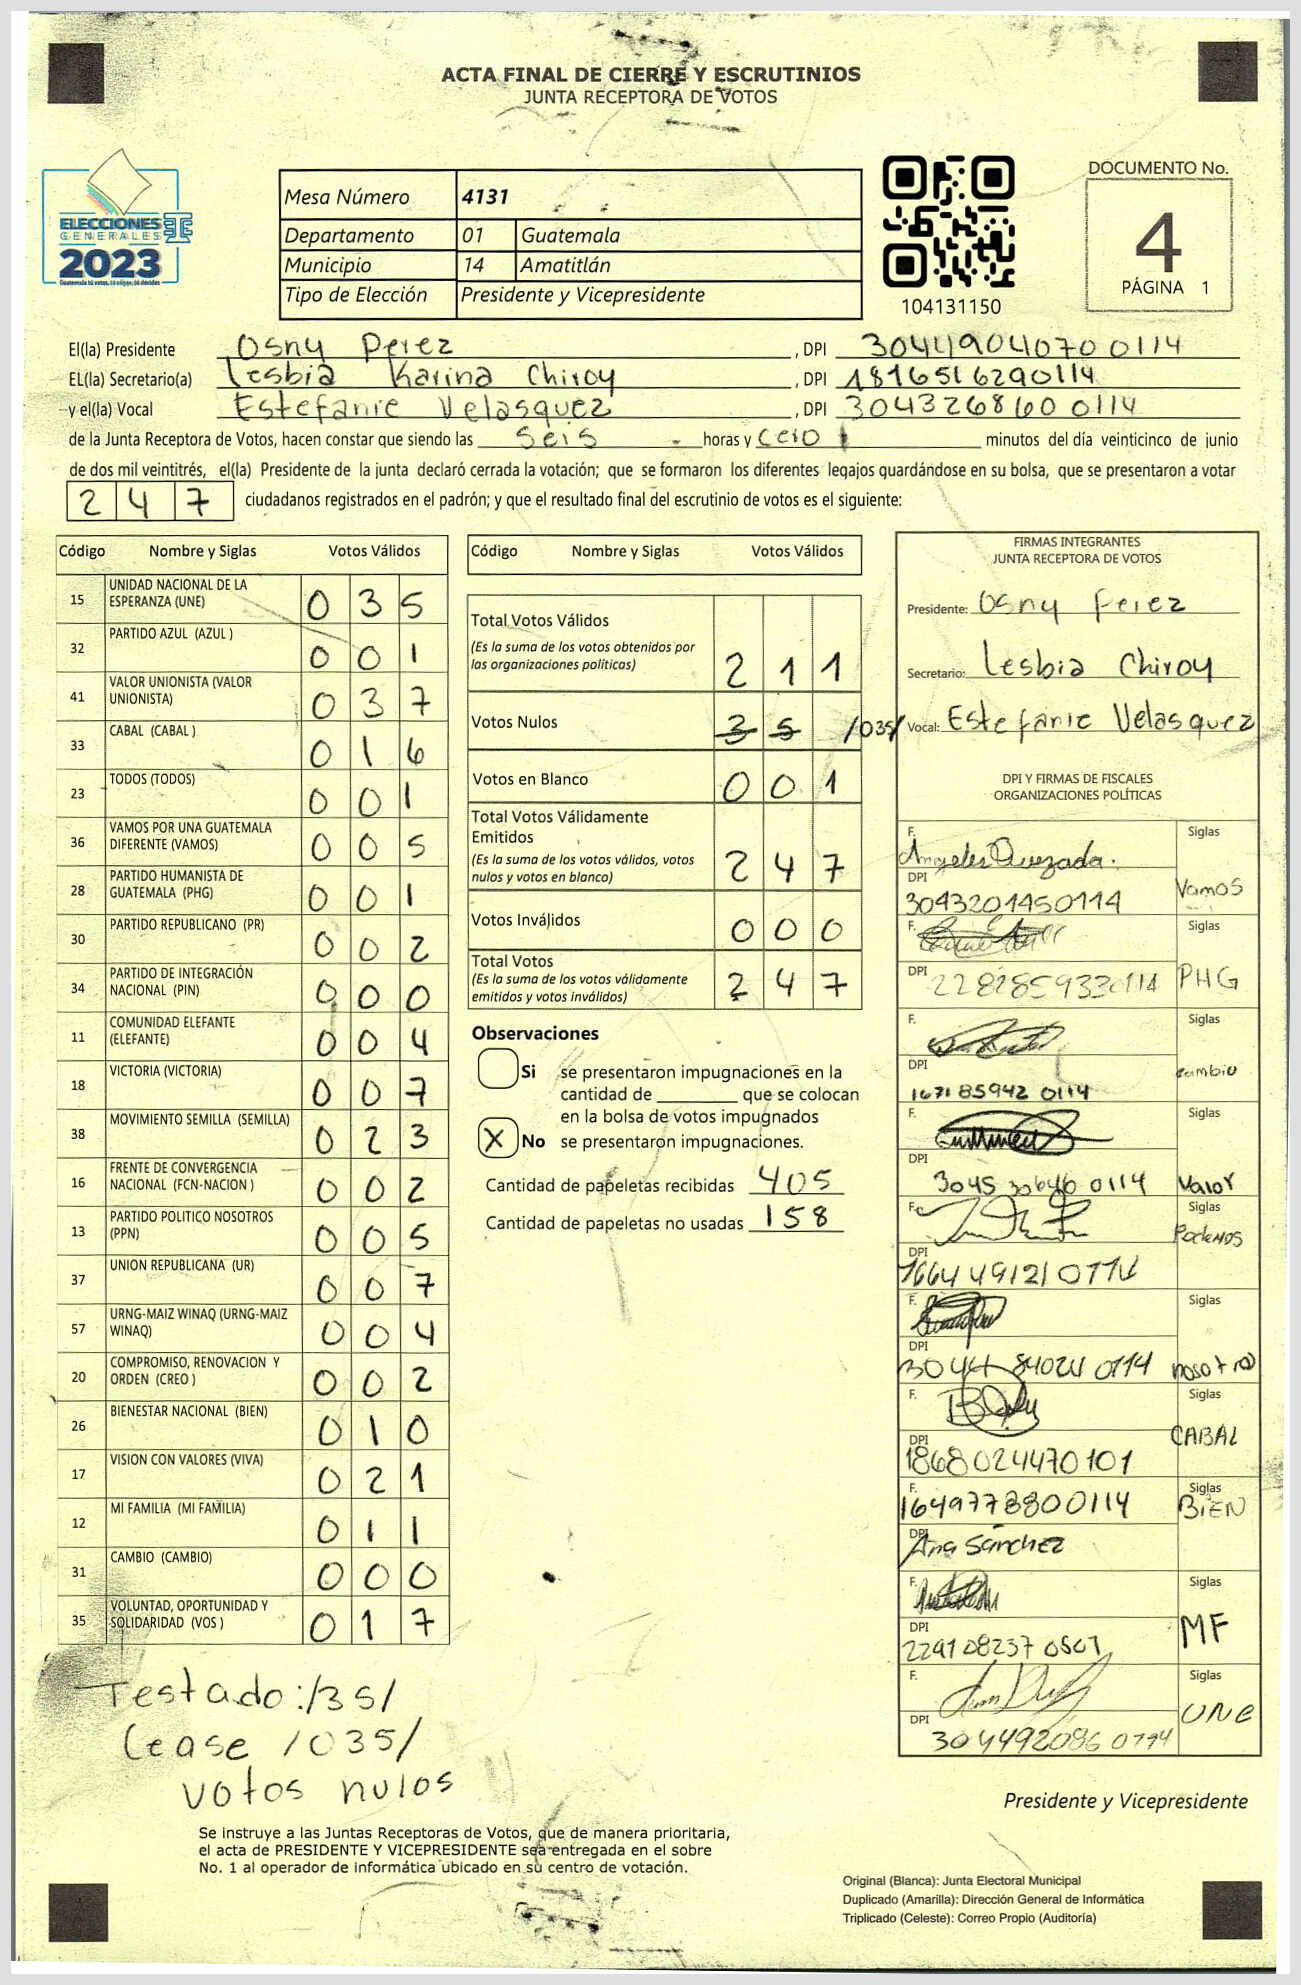 ACTA FINAL DE CIERRE Y ESCRUTINIOS
JUNTA RECEPTORA DE VOTOS
ELECCIONES
GENERALES
2023
TSE
Mesa Número 4131
Departamento 01 Guatemala
Municipio 14 Amatitlán
Tipo de Elección Presidente y Vicepresidente
104131150
DOCUMENTO No.
4
PÁGINA 1
El(la) Presidente Osny Perez , DPI 3044904070 0114
EL(la) Secretario(a) Lesbia Karina Chiroy , DPI 1816516290114
y el(la) Vocal Estefanie Velasquez , DPI 304326860 0114
de la Junta Receptora de Votos, hacen constar que siendo las seis horas y cero minutos del día veinticinco de junio
de dos mil veintitrés, el(la) Presidente de la junta declaró cerrada la votación; que se formaron los diferentes legajos quardándose en su bolsa, que se presentaron a votar
247 ciudadanos registrados en el padrón; y que el resultado final del escrutinio de votos es el siguiente:
Código Nombre y Siglas Votos Válidos
15 UNIDAD NACIONAL DE LA ESPERANZA (UNE) 035
32 PARTIDO AZUL (AZUL ) 001
41 VALOR UNIONISTA (VALOR UNIONISTA) 037
33 CABAL (CABAL ) 016
23 TODOS (TODOS) 001
36 VAMOS POR UNA GUATEMALA DIFERENTE (VAMOS) 005
28 PARTIDO HUMANISTA DE GUATEMALA (PHG) 001
30 PARTIDO REPUBLICANO (PR) 002
34 PARTIDO DE INTEGRACIÓN NACIONAL (PIN) 000
11 COMUNIDAD ELEFANTE (ELEFANTE) 004
18 VICTORIA (VICTORIA) 007
38 MOVIMIENTO SEMILLA (SEMILLA) 023
16 FRENTE DE CONVERGENCIA NACIONAL (FCN-NACION ) 002
13 PARTIDO POLITICO NOSOTROS (PPN) 005
37 UNION REPUBLICANA (UR) 007
57 URNG-MAIZ WINAQ (URNG-MAIZ WINAQ) 004
20 COMPROMISO, RENOVACION Y ORDEN (CREO ) 002
26 BIENESTAR NACIONAL (BIEN) 010
17 VISION CON VALORES (VIVA) 021
12 MI FAMILIA (MI FAMILIA) 011
31 CAMBIO (CAMBIO) 000
35 VOLUNTAD, OPORTUNIDAD Y SOLIDARIDAD (VOS ) 017
Testado:/35/
Lease /035/
votos nulos
Código Nombre y Siglas Votos Válidos
Total Votos Válidos
(Es la suma de los votos obtenidos por
las organizaciones políticas) 211
Votos Nulos 35 /035/
Votos en Blanco 001
Total Votos Válidamente
Emitidos
(Es la suma de los votos válidos, votos
nulos y votos en blanco) 247
Votos Inválidos 000
Total Votos
(Es la suma de los votos válidamente
emitidos y votos inválidos) 247
Observaciones
Si se presentaron impugnaciones en la
cantidad de ________ que se colocan
en la bolsa de votos impugnados
X No se presentaron impugnaciones.
Cantidad de papeletas recibidas 405
Cantidad de papeletas no usadas 158
FIRMAS INTEGRANTES
JUNTA RECEPTORA DE VOTOS
Presidente: Osny Perez
Secretario: Lesbia Chiroy
Vocal: Estefanie Velasquez
DPI Y FIRMAS DE FISCALES
ORGANIZACIONES POLÍTICAS
F. Angeles Quezada. Siglas
DPI 3043201450114 Vamos
F. Siglas
DPI 2282859330114 PHG
F. Siglas
DPI 167185942 0114 cambio
F. Siglas
DPI 3045 30646 0114 Valor
F. Siglas
DPI 1664491210114 Podemos
F. Siglas
DPI 3044 84024 0114 nosotros
F. Siglas
DPI 1868024470101 CABAL
F. 1649778800114 Siglas
DPI Ana Sánchez BIEN
F. Siglas
DPI 229108237 0507 MF
F. Siglas
DPI 304492086 0114 UNE
Presidente y Vicepresidente
Se instruye a las Juntas Receptoras de Votos, que de manera prioritaria,
el acta de PRESIDENTE Y VICEPRESIDENTE sea entregada en el sobre
No. 1 al operador de informática ubicado en su centro de votación.
Original (Blanca): Junta Electoral Municipal
Duplicado (Amarilla): Dirección General de Informática
Triplicado (Celeste): Correo Propio (Auditoría)